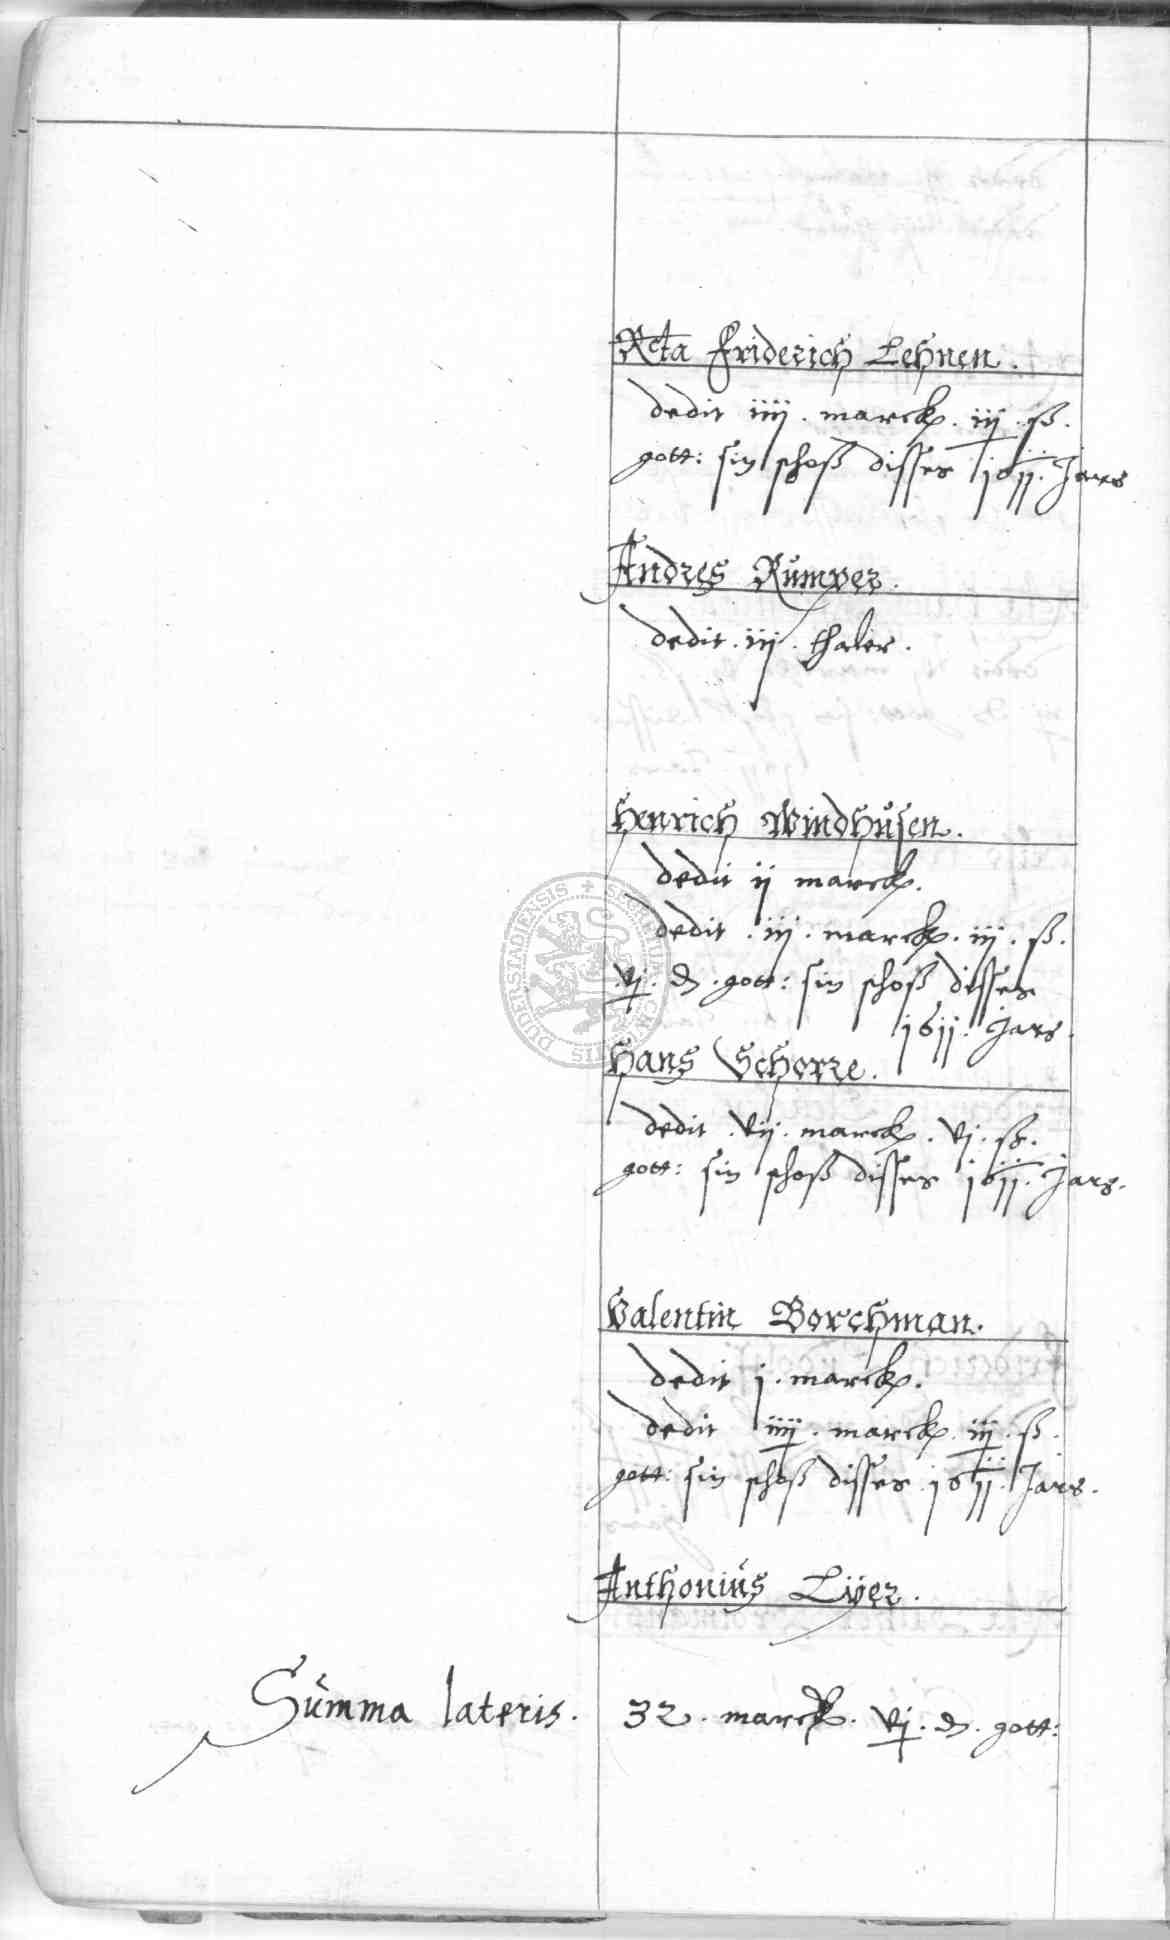 Rcta Friderich Lehnen.
dedit iiij. marck. iij. ß.
gott: sin schoß disses 1611. Jars
Andres Rümper.
dedit. iij. thaler.
Henrich Windhusen.
dedit ij marck.
dedit. iij. marck. iij. ß.
vj. ₰. gott: sin schoß disses
1611. Jars.
Hans Schorze.
dedit. vij. marck. vj. ß.
gott: sin schoß disses 1611. Jars.
Valentin Borchman.
dedit j. marck.
dedit iiij. marck. iij. ß.
gott: sin schoß disses. 1611. Jars.
Anthoniüs Lÿer.
Sümma lateris. 32. marck. vj. ₰. gott:
SECRETUM CIVITATIS DUDERSTADIENSIS